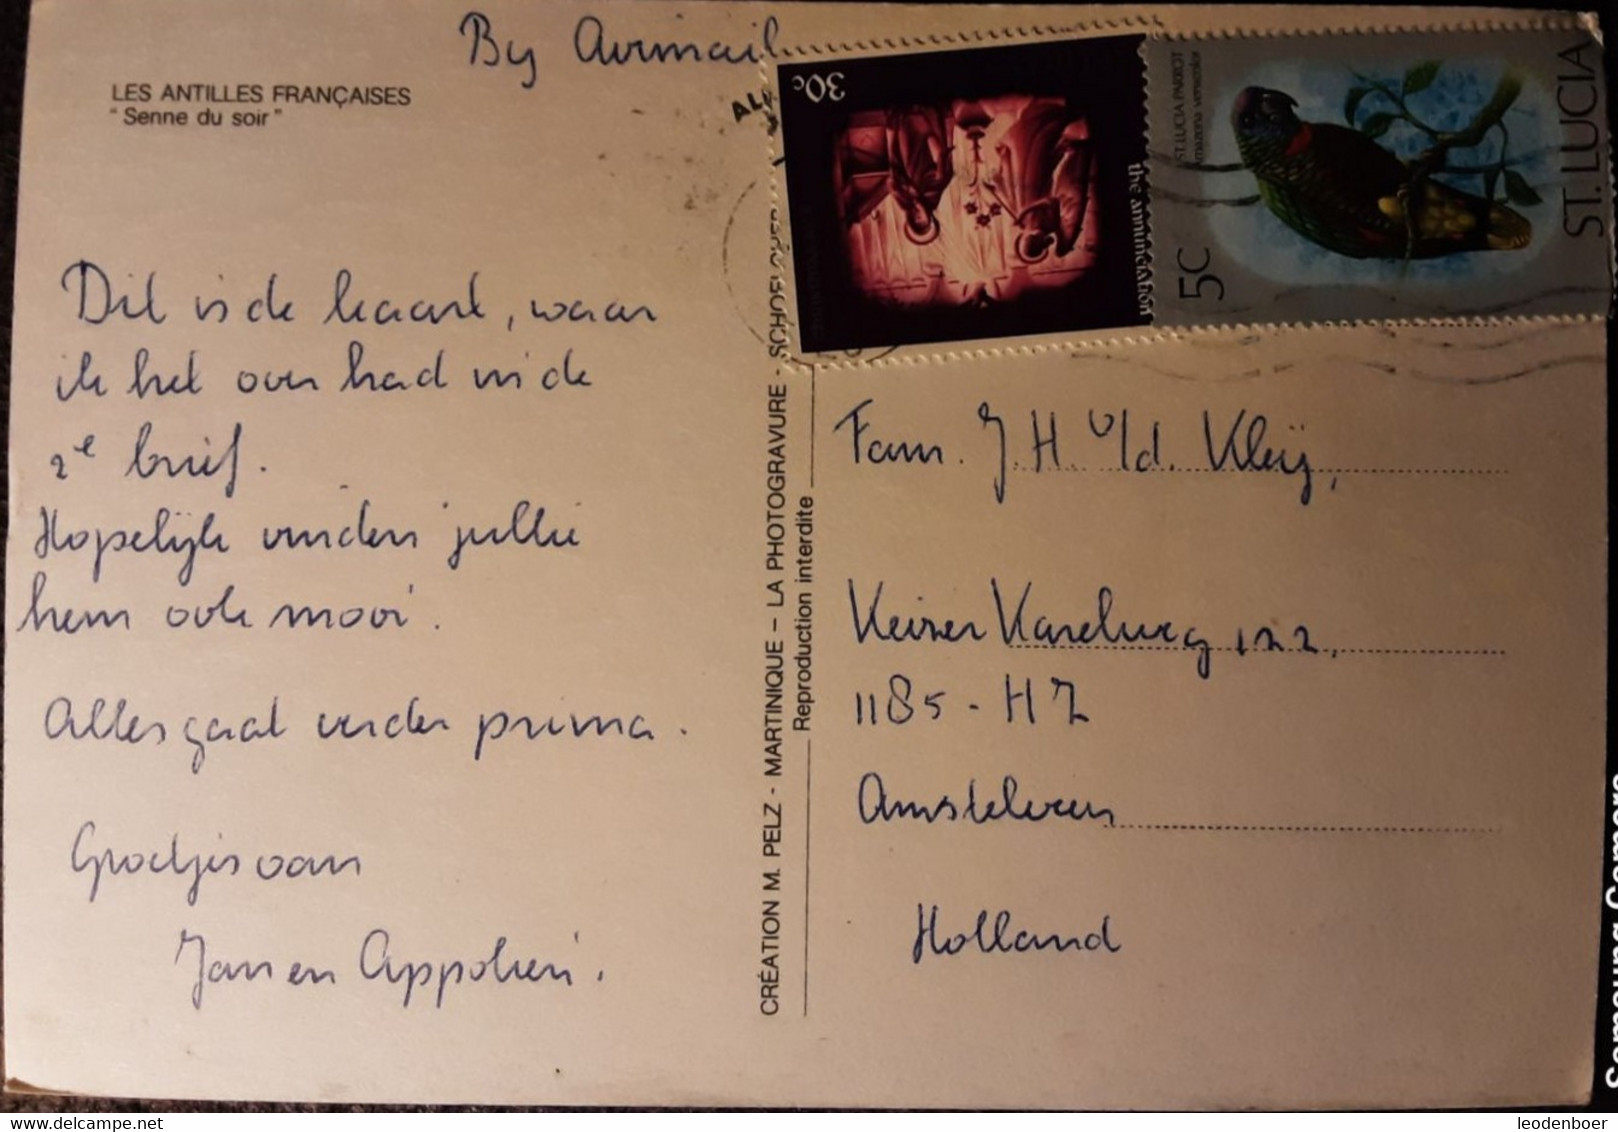 By Airmail
LES ANTILLES FRANÇAISES
"Senne du soir"
Dit is de kaart, waar
ik het over had in de
2e brief.
Hopelijk vinden jullie
hem ook mooi.
Alles gaat verder prima.
Groetjes van
Jan en
CRÉATION M. PELZ - MARTINIQUE – LA PHOTOGRAVURE - SCHOELCHER
Reproduction interdite
30c
the annunciation
ST. LUCIA PARROT
Amazona versicolor
5C
ST. LUCIA
Fam. J.H. v/d. Kleij,
Keizer Karelweg 122,
1185-HZ
Amstelveen
Holland
Samsung Camera
leodenboer